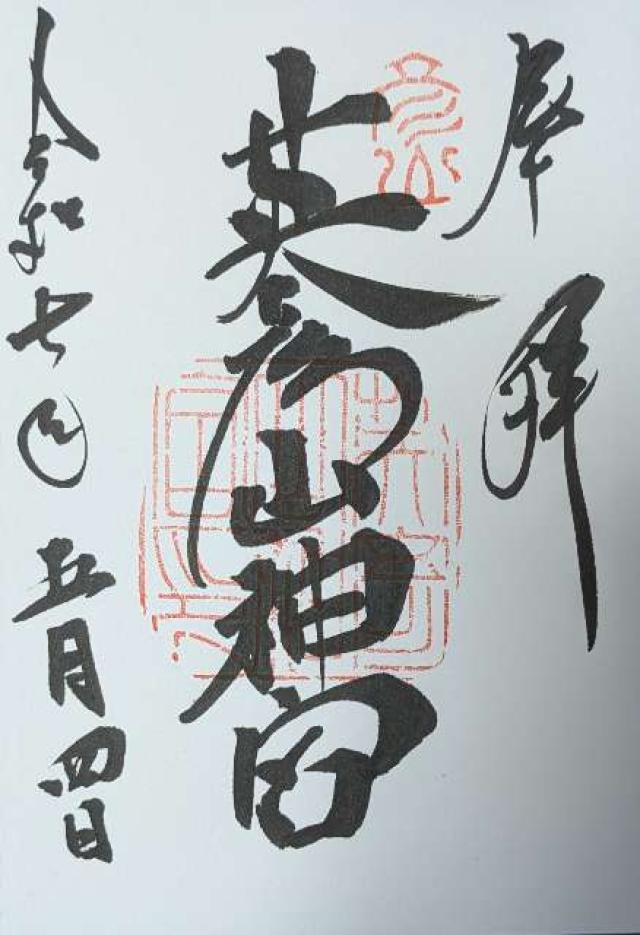 奉拝
英彦山神宮
令和七年五月四日